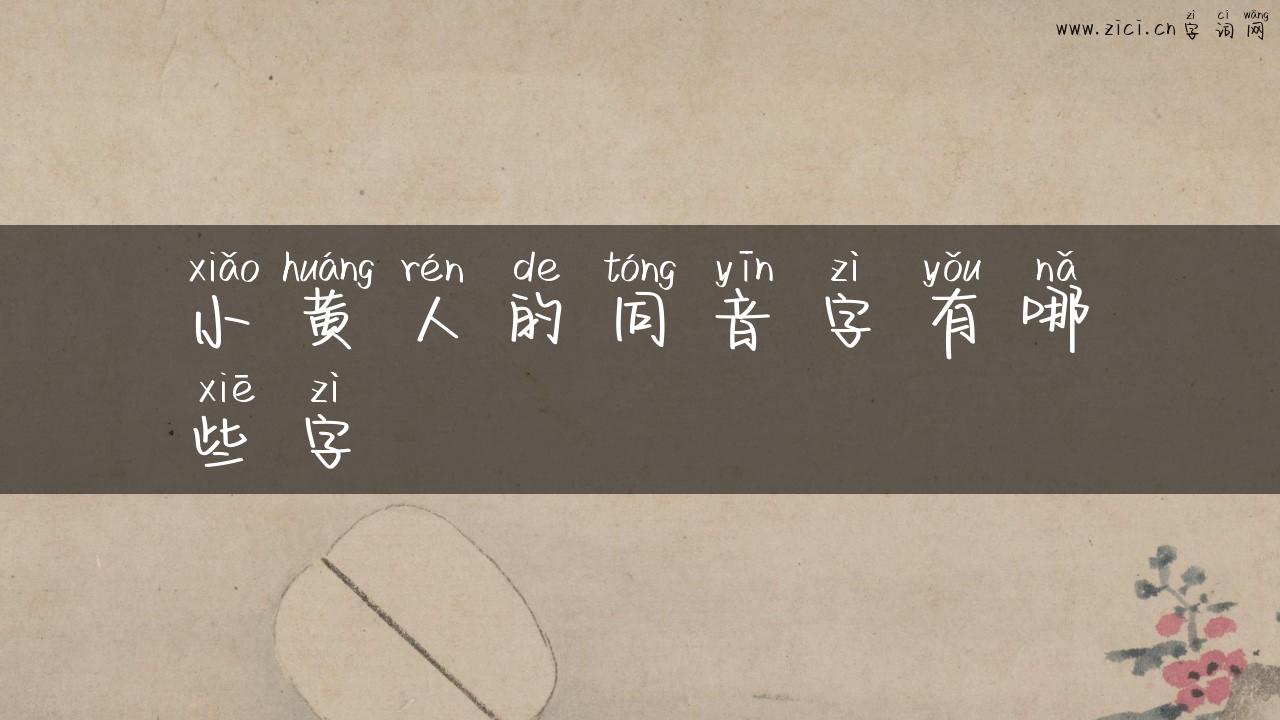 zì cí wǎng
www.zici.cn 字 词 网
xiǎo huáng rén de tóng yīn zì yǒu nǎ
小 黄 人 的 同 音 字 有 哪
xiē zì
些 字